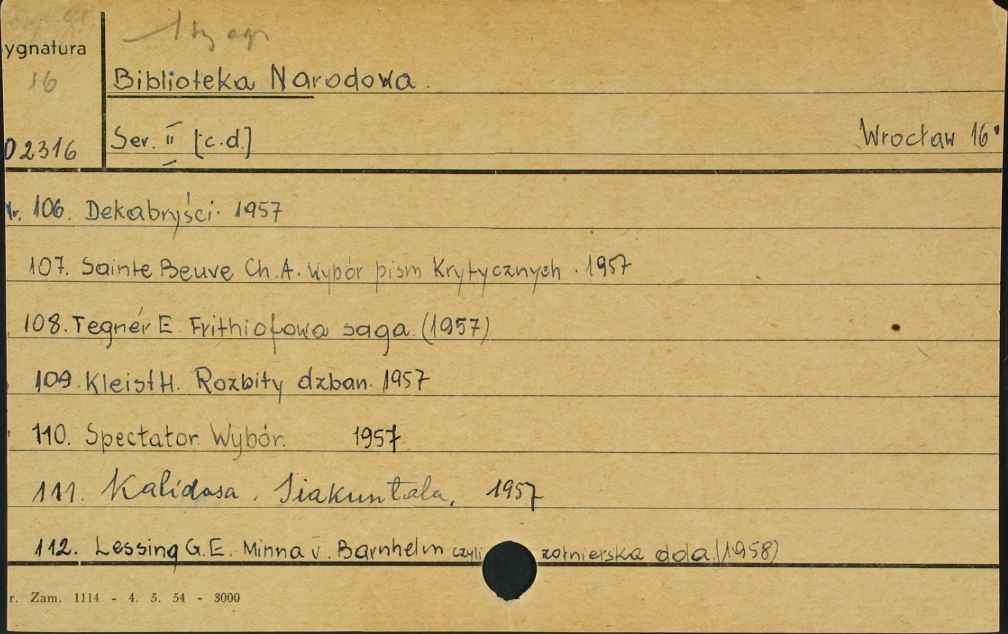 1 egz
ygnatura
16
Biblioteka Narodowa.
02316
Ser. II [c.d.]
Wrocław 16°
Nr. 106. Dekabryści. 1957
107. Sainte Beuve Ch. A. Wybór pism Krytycznych. 1957
108. Tegnér E. Frithiofowa saga. (1957)
109. Kleist H. Rozbity dzban. 1957
110. Spectator. Wybór. 1957
111. Kalidasa. Siakuntala, 1957
112. Lessing G.E. Minna v. Barnhelm czyli żołnierska dola. (1958)
r. Zam. 1114 - 4. 5. 54 - 3000